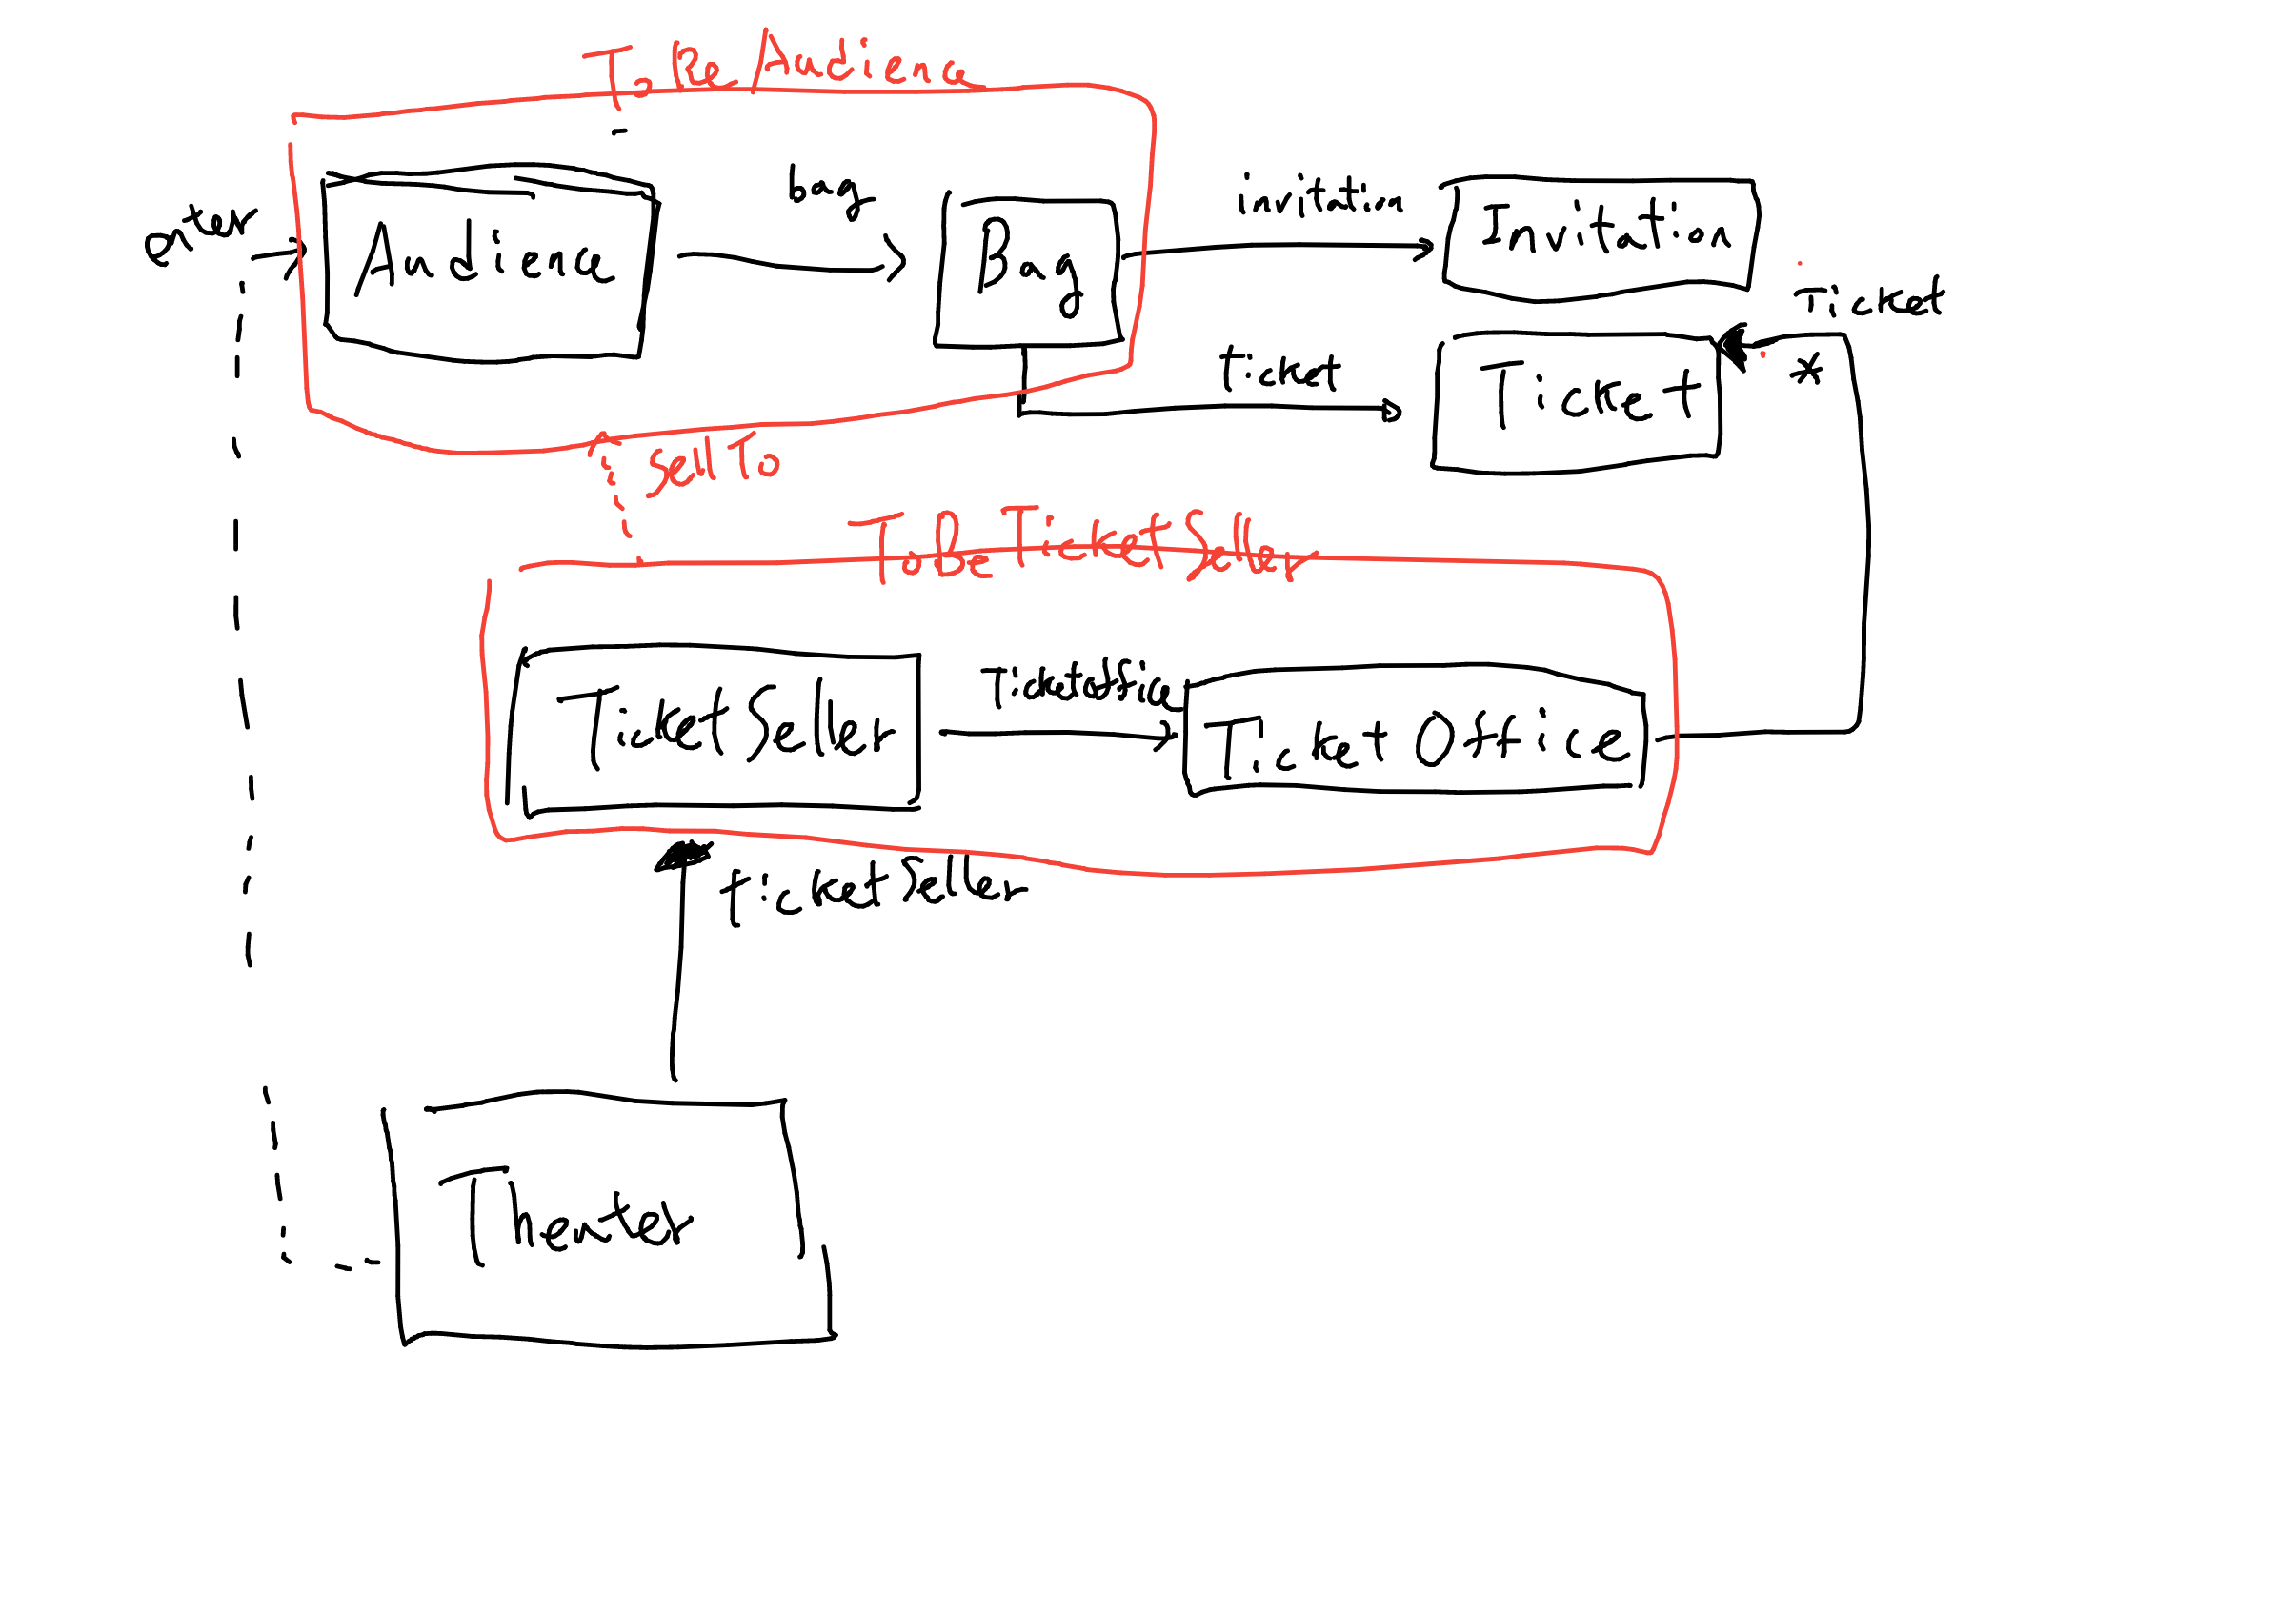 To Be Audience
bag
enter
Audience
Bag
invitation
Invitation
Ticket
*
ticket
Ticket
sellTo
To Be TicketSeller
TicketSeller
Ticketoffice
TicketOffice
ticketSeller
Theater